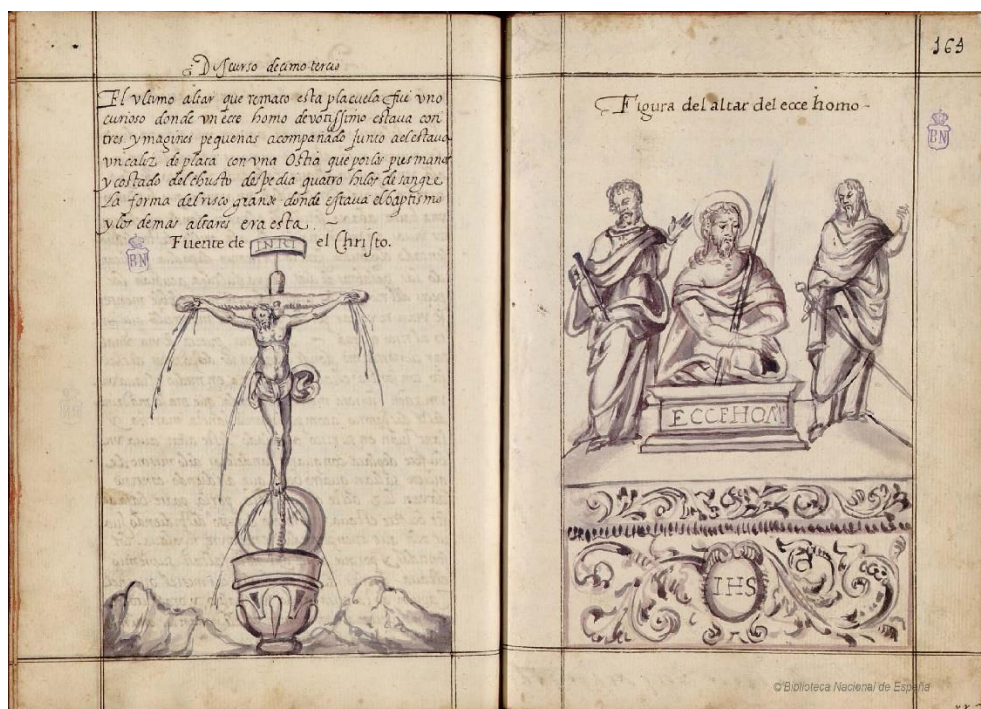 Discurso decimo tercio
El vltimo altar que remato esta plaçuela fue vno
curioso donde vn ecce homo devotissimo estava con
tres ymagines pequenas acompañado junto a el estava
vn caliz de plata con vna Ostia que por los pies manos
y costado del chusto despedia quatro hilos de sangre
La forma del risco grande donde estava el baptismo
y los demas altares era esta. ~
Fuente de INRI el Christo.
BN
164
Figura del altar del ecce homo -
BN
ECCEHOM
IHS
© Biblioteca Nacional de España